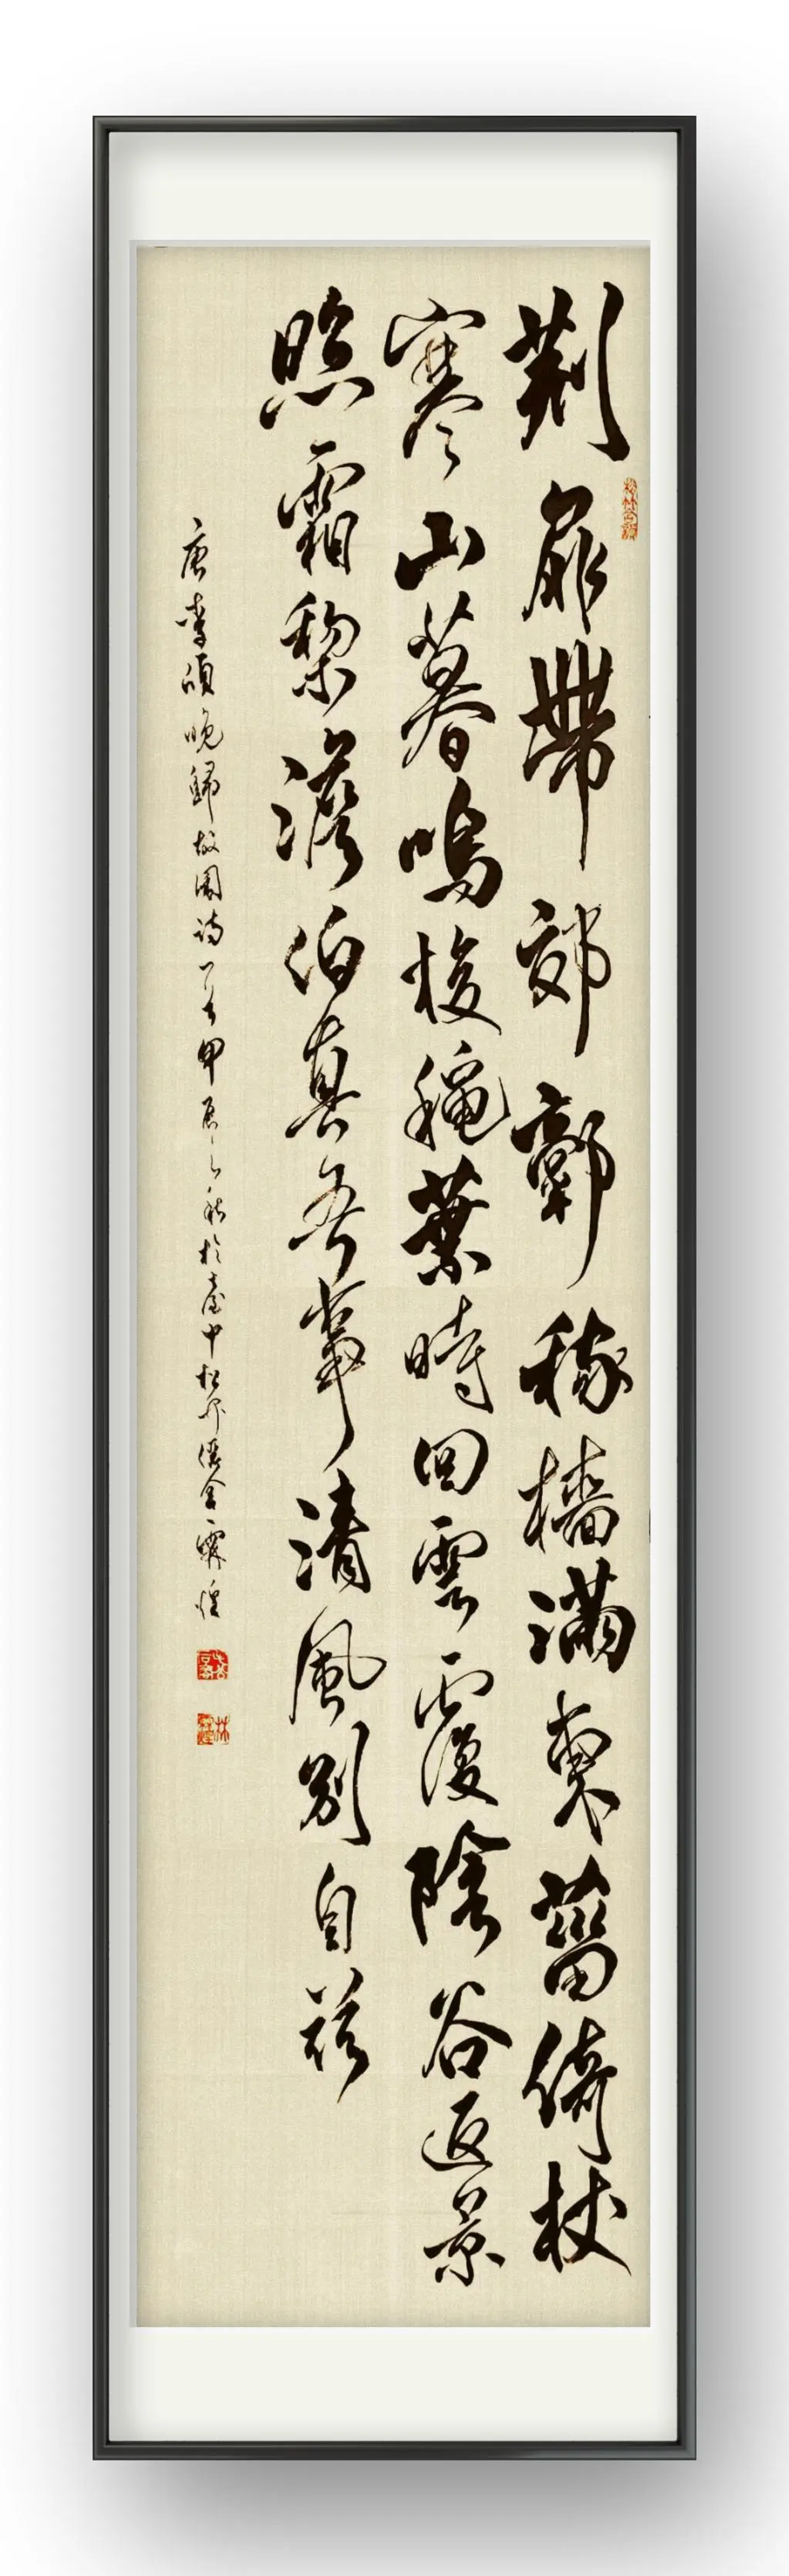 荊扉帶郊郭稼穡滿東菑倚杖
寒山暮鳴梭穐葉時回雲覆陰谷返景
照霜棃澹泊真吾事清風別自茲
唐李頎晚歸故園詩一首甲辰之秋於臺中松竹舍霖煌